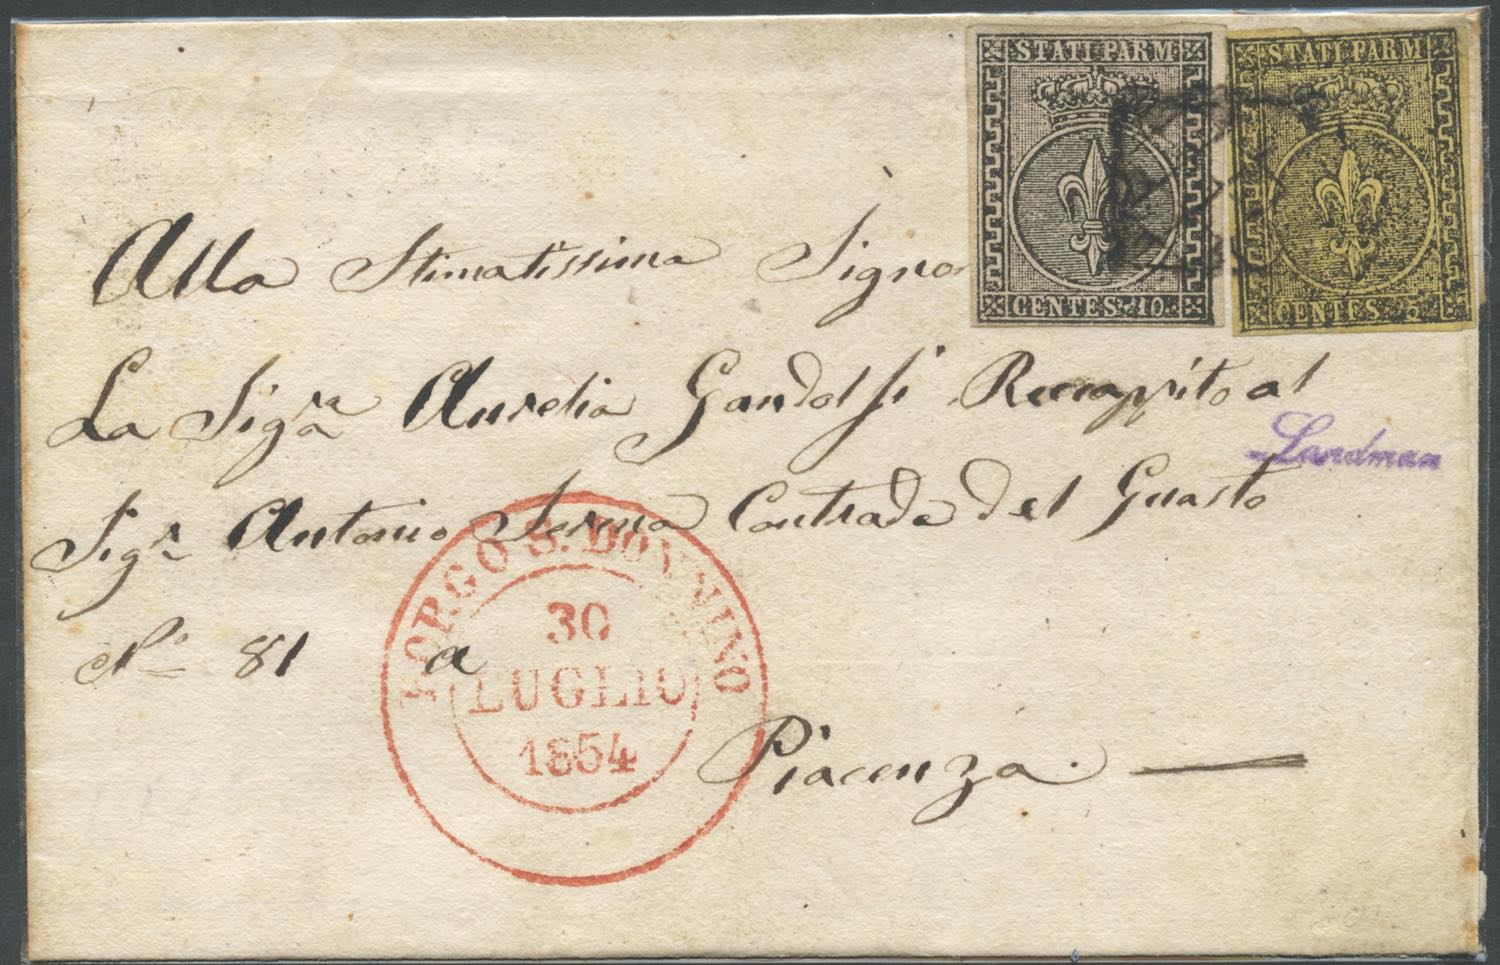 STATI PARM
CENTES. 10.
STATI PARM
CENTES. 5
Alla Stimatissima Signor
La Sigra Aurelia Gandolfi Recapito al
Landman
Sigr Antonio Serena Contrada del Guasto
No 81 a
Piacenza.
BORGO S. DONNINO
30
LUGLIO
1854